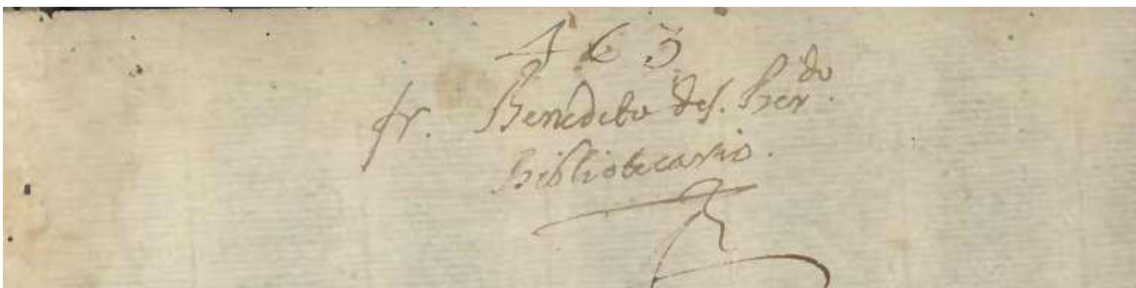 463
fr. Benedito de S. Berdo.
Bibliotecario.